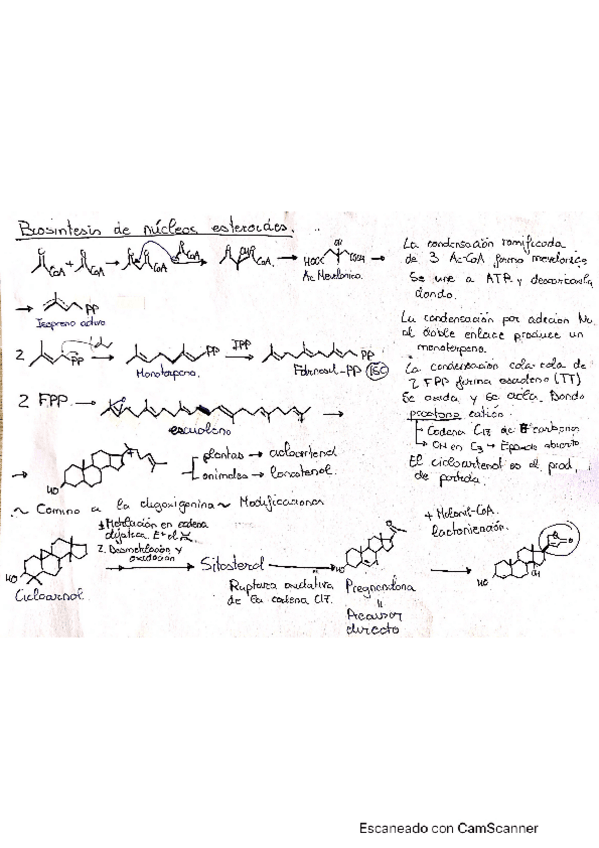 Biosíntesis de núcleos esteroides.
CoA + CoA → CoA CoA → CoA → HOOC OH COOH
Ac Mevalónico.
→ PP
Isopreno activo
2 PP → PP IPP → PP
Monoterpeno. Farnesil-PP 15C
2 FPP. →
escualeno
→ HO
plantas → cicloartenol
animales → lanosterol.
La condensación ramificada
de 3 Ac-CoA forma mevalónico
Se une a ATP y descarboxila
dando.
La condensación por adición Nu.
al doble enlace produce un
monoterpeno.
La condensación cola-cola de
2 FPP forma escualeno (TT)
Se oxida y se cicla. Dando
catión.
Cadena C17 de 8 carbonos
OH en C3 → Epóxido abierto
El cicloartenol es el prod.
de partida.
~ Camino a la digoxigenina ~ Modificaciones
1 Metilación en cadena
2. Desmetilación y
oxidación
HO → Sitosterol → HO → HO OH
Ruptura oxidativa
de la cadena C17.
Pregnenolona
=
directo
+ Malonil-CoA
lactonización.
Escaneado con CamScanner